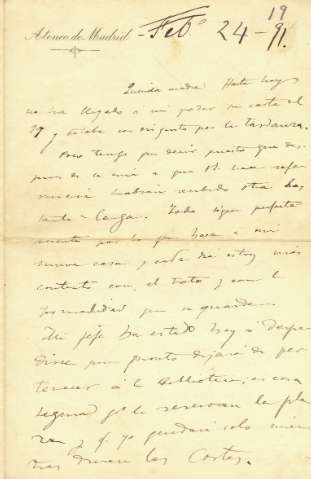 Ateneo de Madrid
Feb.o 24-1991.
Querida madre Hasta hoy
no ha llegado á mi poder su carta del
19 y estaba con disgusto por la tardanza.
Poco tengo que decir puesto que des-
pues de la carta á que V. hace refe-
rencia habrán recibido otra bas-
tante larga. Todo sigue perfecta-
mente por lo que hace á mi
nueva casa y cada dia estoy más
contento con el trato y con la
formalidad que se guarda.
Mi jefe ha estado hoy á despe-
dirse pues pronto dejará de per-
tenecer á la Biblioteca, es cosa
segura q.e le reservan la pla-
za y q. yo quedaré solo mien-
tras duren las Cortes.